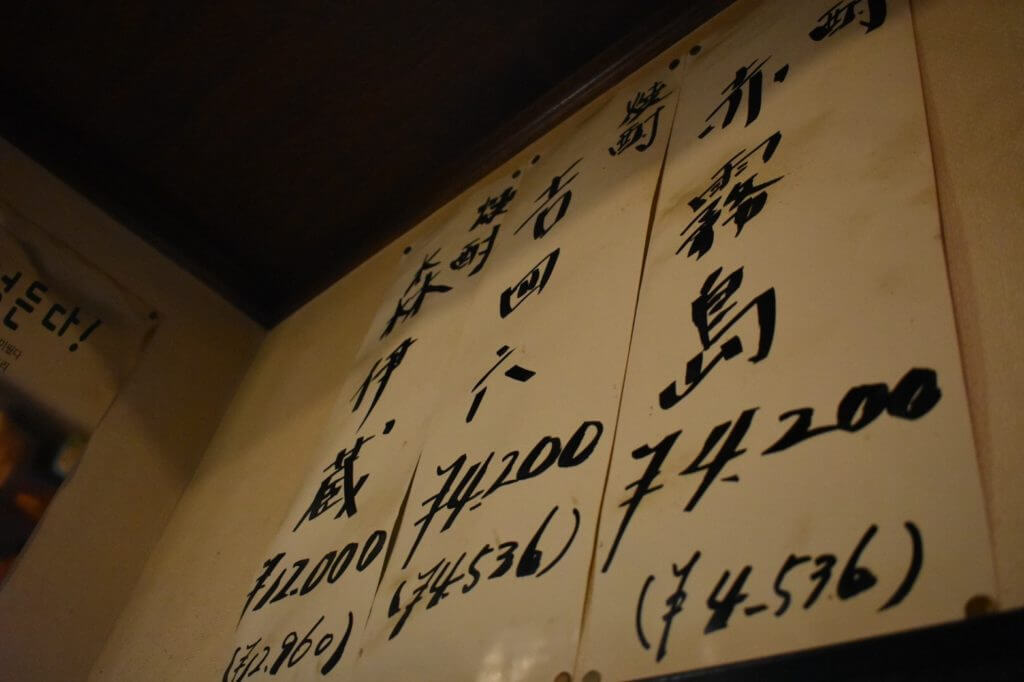 焼酎
赤霧島
¥4.200
(¥4.536)
焼酎
吉四六
¥4.200
(¥4.536)
焼酎
森伊蔵
¥12.000
(¥12.960)
든다!